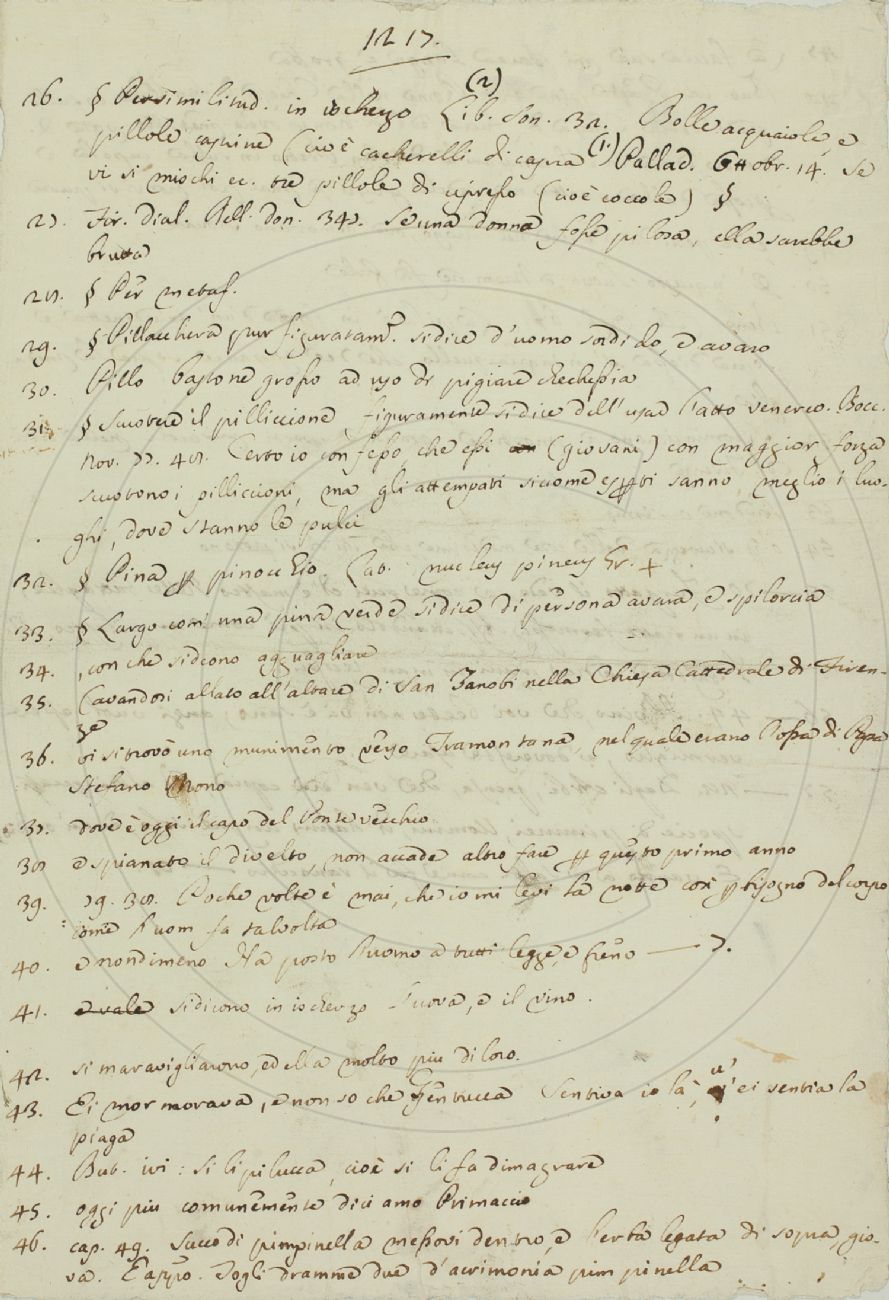 1217.
26. § Per similitud. in ischerzo (2) Lib. son. 32. Bolle acquaiole, e
pillole caprine (cioè cacherelli di capra (1.) Pallad. Ottobr. 14. Se
vi si mischi ec. tre pillole di cipresso (cioè coccole) §
27. Fir. dial. Bell. don. 347. Se una donna fosse pilosa, ella sarebbe
brutta
28. § Per metaf.
29. § Pillacchera pur figuratamte. si dice d'uomo sordido, e avaro
30. Pillo bastone grosso ad uso di pigiare checchessia
31. § Scuotere il pilliccione, figuramente si dice dell'usar l'atto venereo. Bocc.
Nov. 77. 48. Certo io confesso che essi (giovani) con maggior forza
scuotono i pilliccioni, ma gli attempati sicome esperti sanno meglio i luo-
ghi, dove stanno le pulci
32. § Pina p pinocchio. Lat. nucleus pineus Gr. +
33. § Largo come una pina verde si dice di persona avara, e spilorcia
34. , con che si dicono agguagliare
35. Cavandosi allato all'altare di San Zanobi nella Chiesa Cattedrale di Firen-
ze
36. vi si trovò uno munimento verso Tramontana, nel quale erano l'ossa di Papa
Stefano Nono
37. dove è oggi il capo del Ponte vecchio
38 e spianato il divelto, non accade altro fare p questo primo anno
39. 79. 38. Poche volte è mai, che io mi levi la notte così p bisogno del corpo
come l'uom fa talvolta
40. e nondimeno Ha posto l'uomo a tutti legge, e freno — 7.
41. e vale si dicono in ischerzo l'uova, e il vino.
42. si maravigliarono, ed ella molto piu di loro.
43. Ei mormorava, e non so che Gentucca Sentiva io là, u' ei sentia la
piaga
44. But. ivi: Si li pilucca, cioè si li fa dimagrare
45. oggi piu comunemente diciamo Primaccio
46. cap. 49. Succo di pimpinella messovi dentro, e l'erba legata di sopra, gio-
va. E appo. Togli dramme due d'acrimonia pimpinella